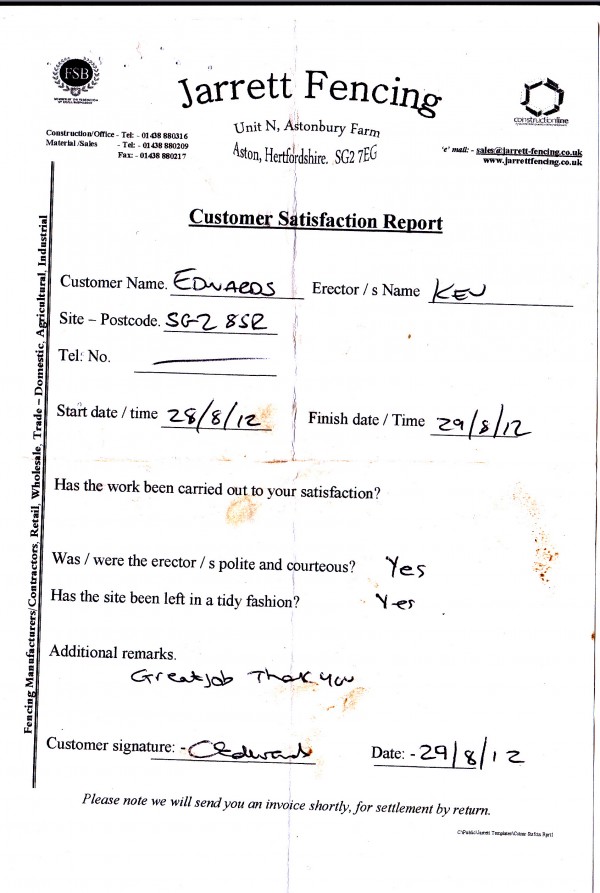 FSB
Jarrett Fencing
Unit N, Astonbury Farm
Aston, Hertfordshire. SG2 7EG
constructionline
Construction/Office - Tel: - 01438 880316
Material/Sales - Tel: - 01438 880209
Fax: - 01438 880217
'e' mail: - sales@jarrett-fencing.co.uk
www.jarrettfencing.co.uk
Customer Satisfaction Report
Fencing Manufacturers/Contractors, Retail, Wholesale, Trade – Domestic, Agricultural, Industrial
Customer Name. EDWARDS Erector / s Name KEV
Site – Postcode. SG2 8SR
Tel: No.
Start date / time 28/8/12 Finish date / Time 29/8/12
Has the work been carried out to your satisfaction?
Was / were the erector / s polite and courteous? Yes
Has the site been left in a tidy fashion? Yes
Additional remarks.
Great job Thank you
Customer signature: - CEdwards Date: - 29/8/12
Please note we will send you an invoice shortly, for settlement by return.